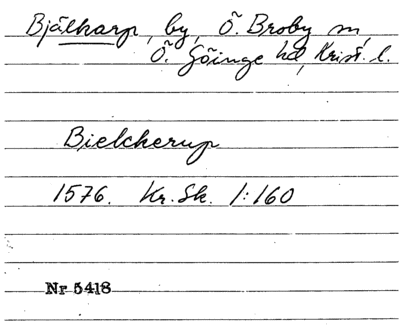 Bjälkarp, by, Ö. Broby sn,
Ö. Göinge hd, Krist. l.
Bielckerup
1576. Kr. Sk. 1:160
Nr 5418